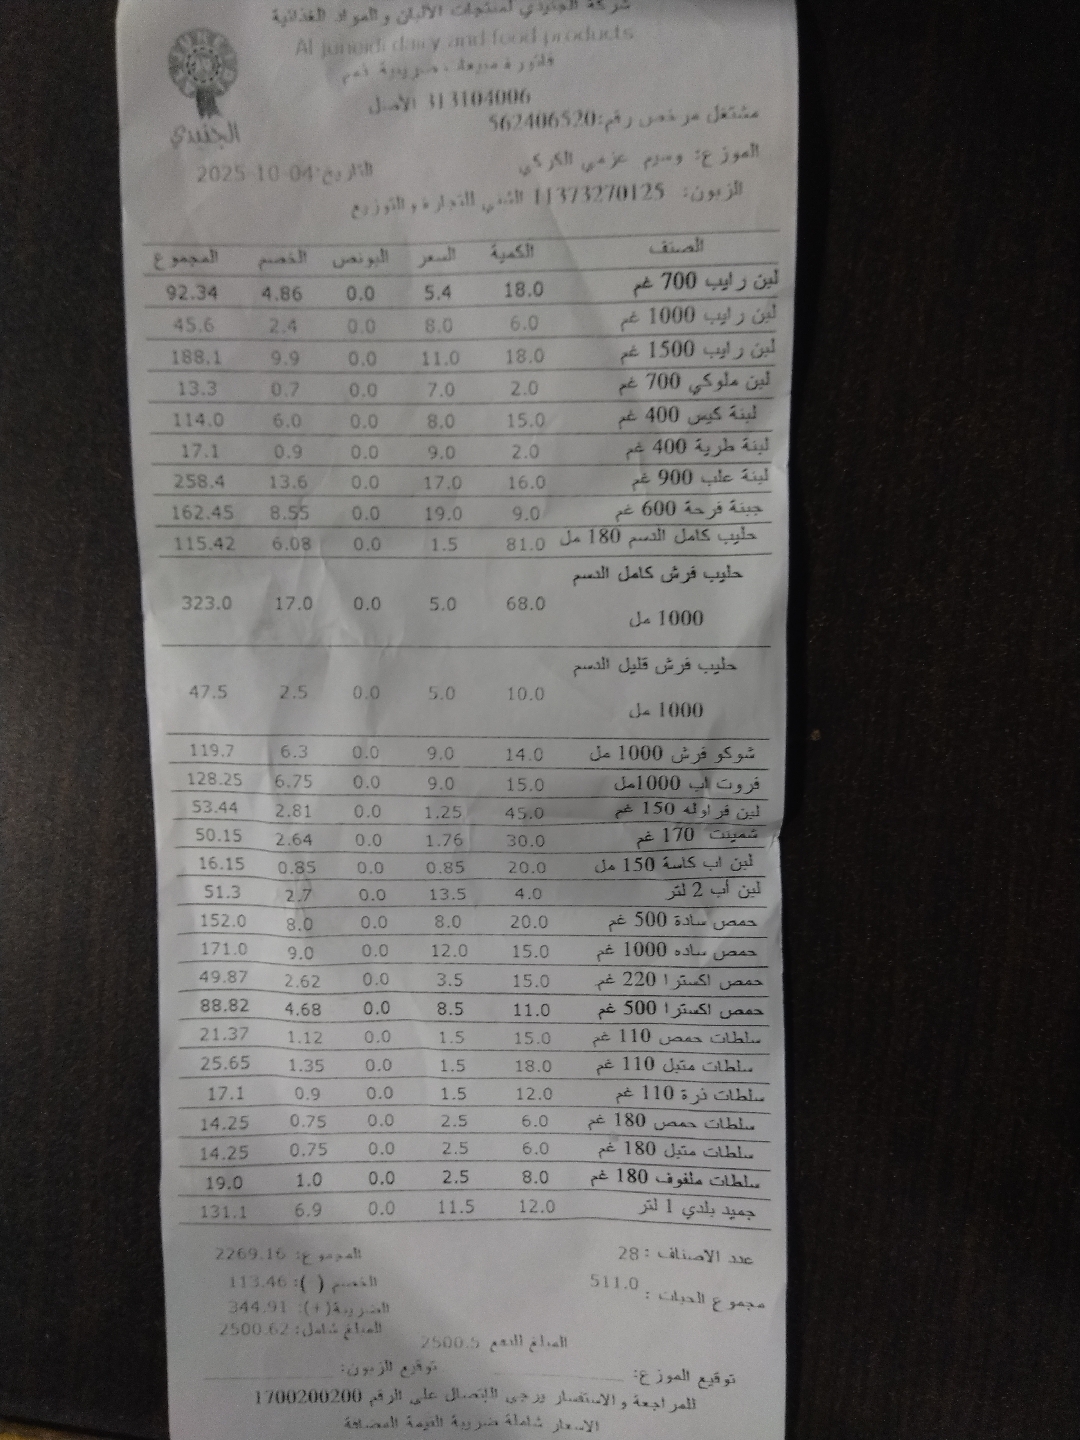 شركة الجنيدي لمنتجات الألبان والمواد الغذائية
Al juneidi dairy and food products
فاتورة مبيعات ضريبية
الجنيدي
313104006 الأصل
مشتغل مرخص رقم:562406520
الموزع: وسيم عزمي الكركي
التاريخ:2025-10-04
الزبون: 11373270125 للتجارة والتوزيع
الصنف الكمية السعر البونص الخصم المجموع
لبن رايب 700 غم 18.0 5.4 0.0 4.86 92.34
لبن رايب 1000 غم 6.0 8.0 0.0 2.4 45.6
لبن رايب 1500 غم 18.0 11.0 0.0 9.9 188.1
لبن ملوكي 700 غم 2.0 7.0 0.0 0.7 13.3
لبنة كيس 400 غم 15.0 8.0 0.0 6.0 114.0
لبنة طرية 400 غم 2.0 9.0 0.0 0.9 17.1
لبنة علب 900 غم 16.0 17.0 0.0 13.6 258.4
جبنة فرحة 600 غم 9.0 19.0 0.0 8.55 162.45
حليب كامل الدسم 180 مل 81.0 1.5 0.0 6.08 115.42
حليب فرش كامل الدسم
1000 مل 68.0 5.0 0.0 17.0 323.0
حليب فرش قليل الدسم
1000 مل 10.0 5.0 0.0 2.5 47.5
شوكو فرش 1000 مل 14.0 9.0 0.0 6.3 119.7
فروت اب 1000مل 15.0 9.0 0.0 6.75 128.25
لبن فراوله 150 غم 45.0 1.25 0.0 2.81 53.44
شمينت 170 غم 30.0 1.76 0.0 2.64 50.15
لبن اب كاسة 150 مل 20.0 0.85 0.0 0.85 16.15
لبن أب 2 لتر 4.0 13.5 0.0 2.7 51.3
حمص سادة 500 غم 20.0 8.0 0.0 8.0 152.0
حمص ساده 1000 غم 15.0 12.0 0.0 9.0 171.0
حمص اكسترا 220 غم 15.0 3.5 0.0 2.62 49.87
حمص اكسترا 500 غم 11.0 8.5 0.0 4.68 88.82
سلطات حمص 110 غم 15.0 1.5 0.0 1.12 21.37
سلطات متبل 110 غم 18.0 1.5 0.0 1.35 25.65
سلطات ذرة 110 غم 12.0 1.5 0.0 0.9 17.1
سلطات حمص 180 غم 6.0 2.5 0.0 0.75 14.25
سلطات متبل 180 غم 6.0 2.5 0.0 0.75 14.25
سلطات ملفوف 180 غم 8.0 2.5 0.0 1.0 19.0
جميد بلدي 1 لتر 12.0 11.5 0.0 6.9 131.1
عدد الاصناف : 28 المجموع: 2269.16
مجموع الحبات : 511.0 الخصم ( ): 113.46
الضريبة(+): 344.91
المبلغ شامل: 2500.62
المبلغ للدفع 2500.5
توقيع الموزع: توقيع الزبون:
للمراجعة والاستفسار يرجى الإتصال على الرقم 1700200200
الاسعار شاملة ضريبة القيمة المضافة